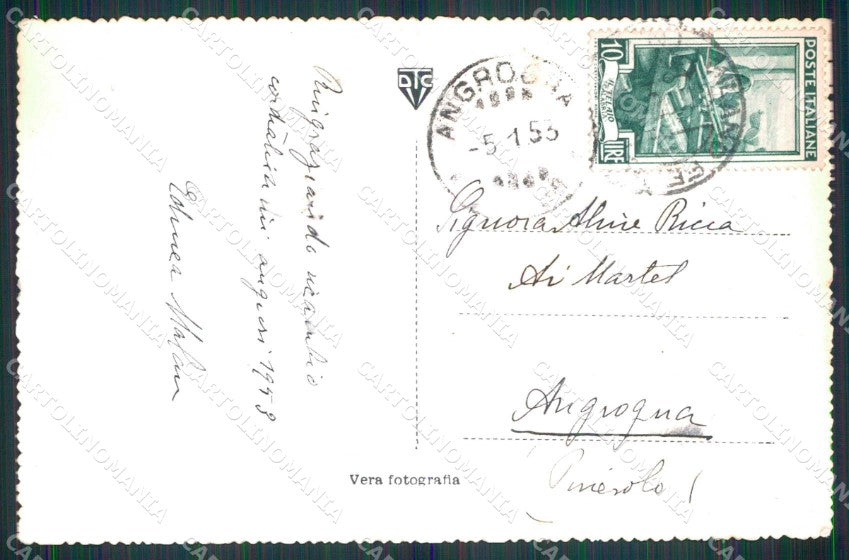 Ringraziando ricambio
cordialissimi auguri 1953
Edmea Malan
DTC
ANGROGNA
-5.1.53
10
LIRE
POSTE ITALIANE
Signora Aline Ricca
Ai Martel
Angrogna
(Pinerolo)
Vera fotografia
CARTOLINOMANIA